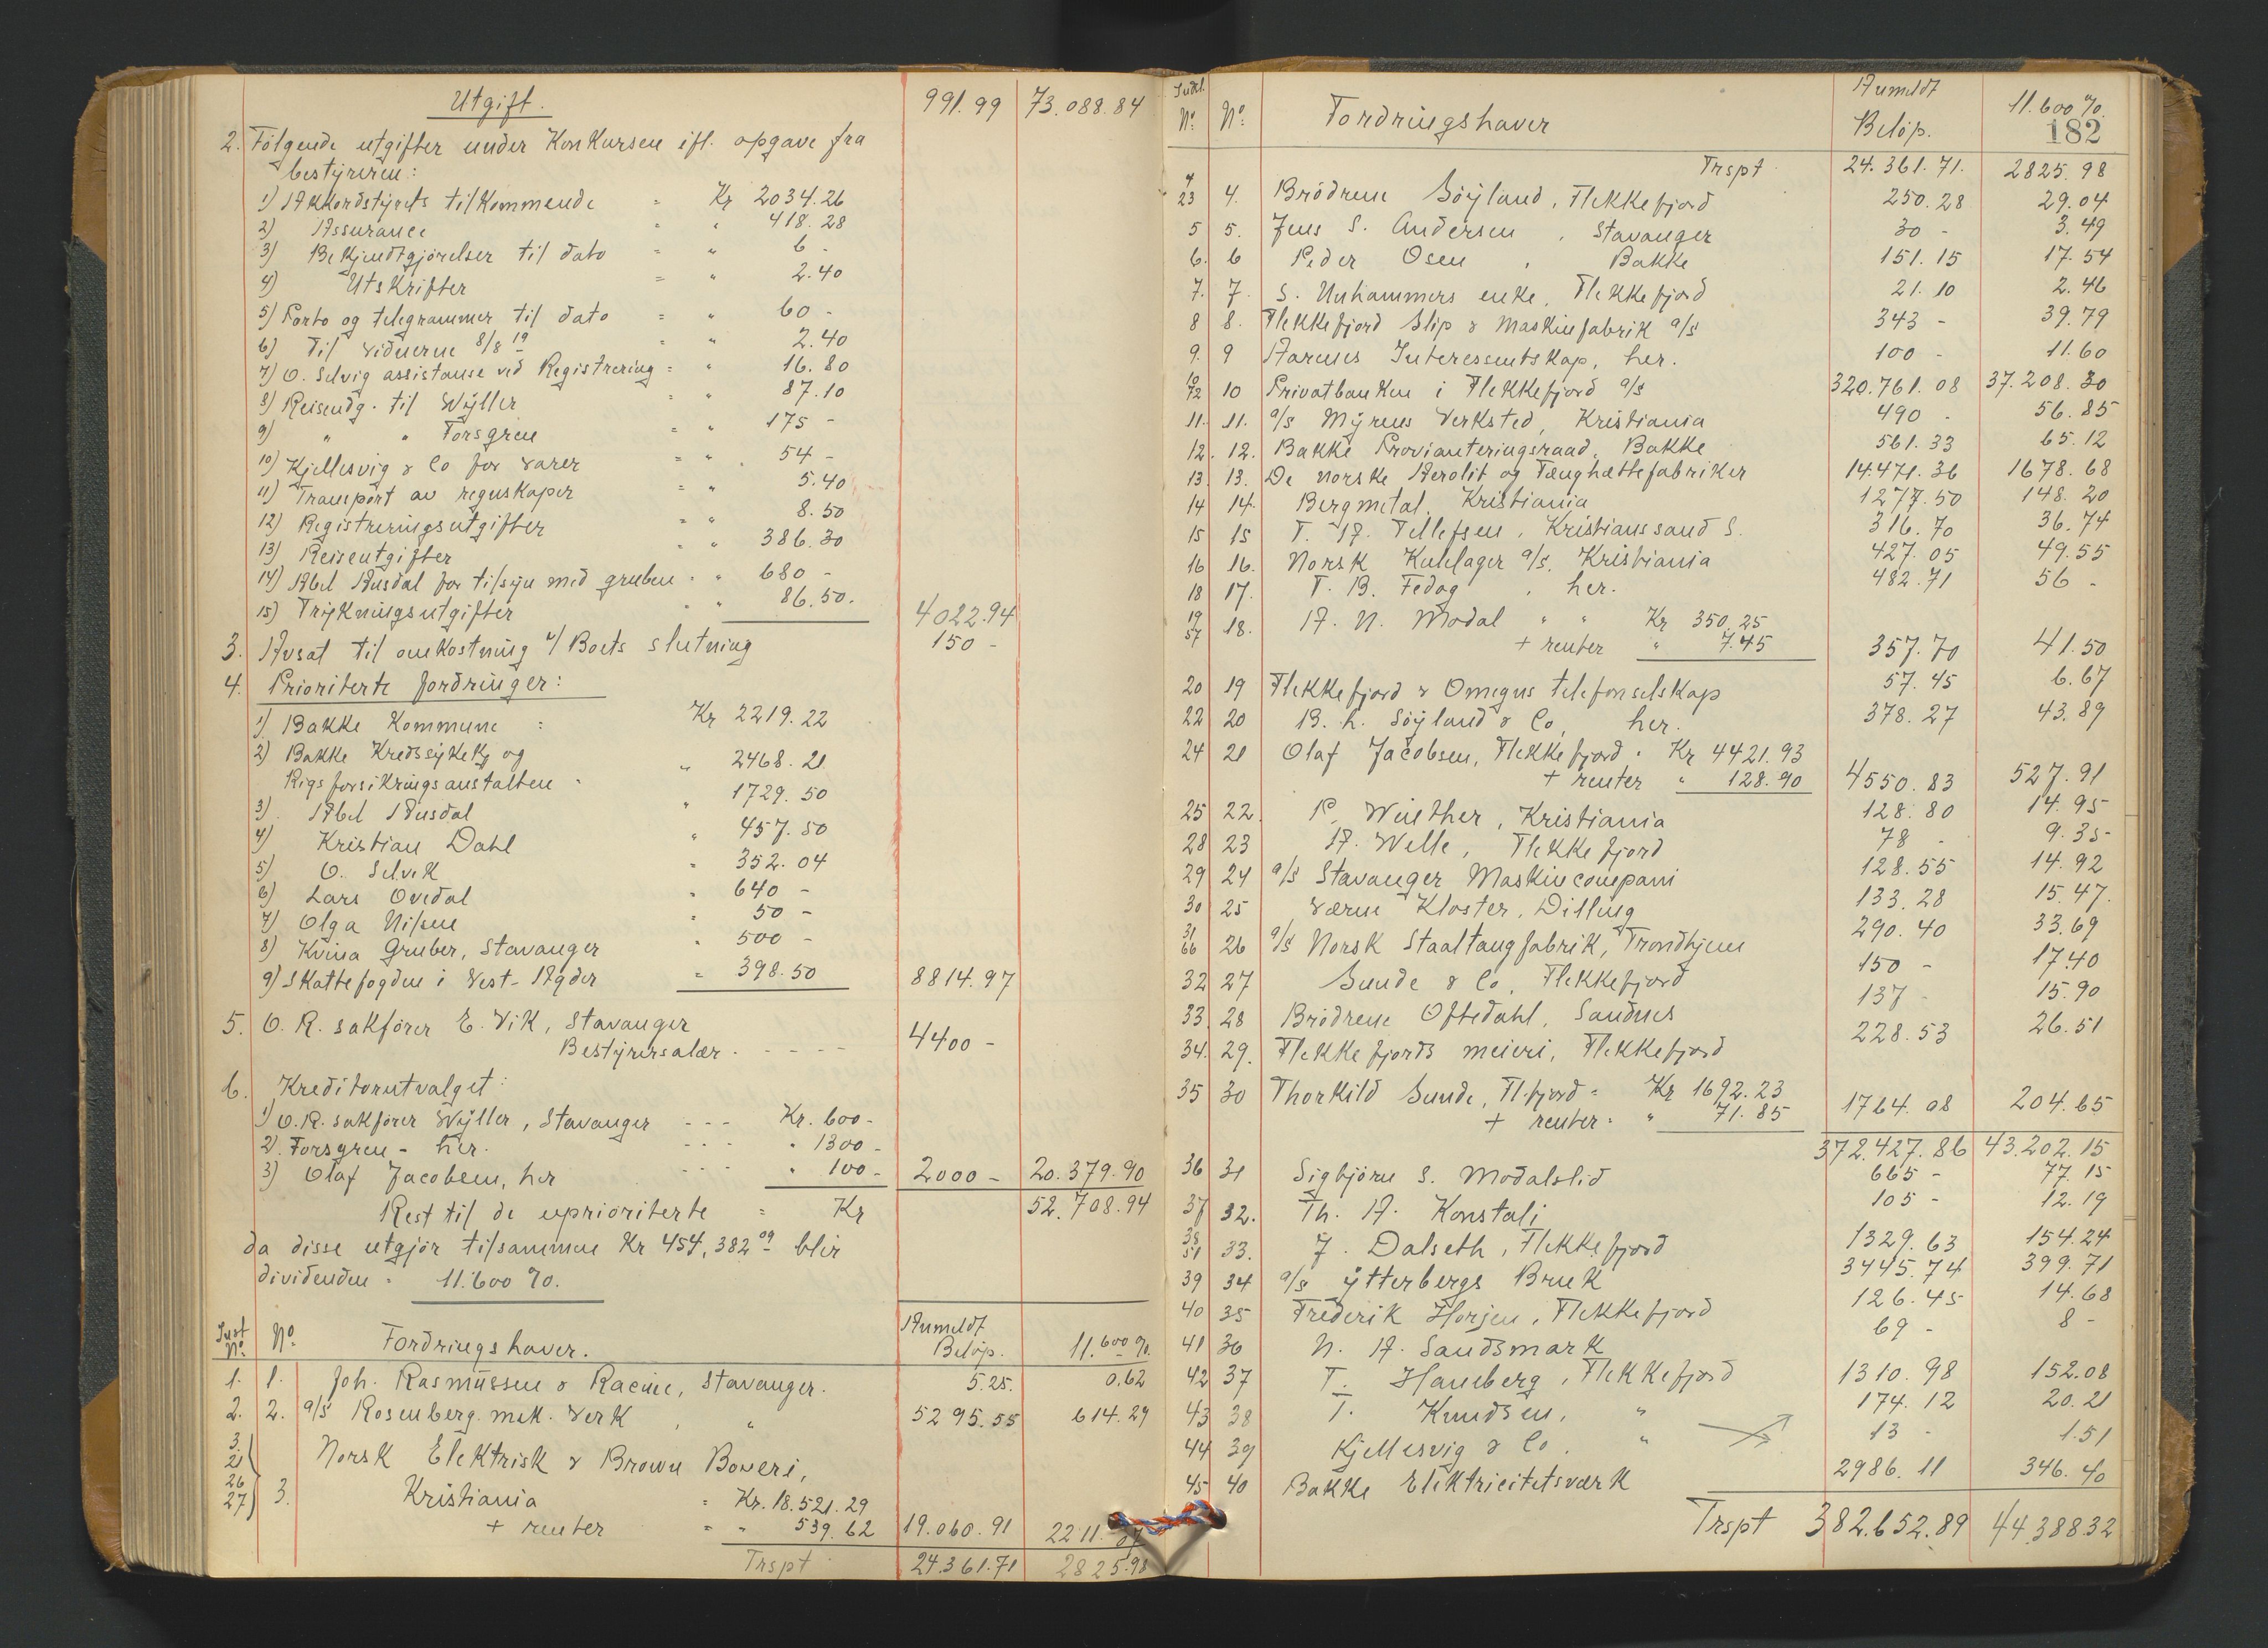 Utgift. 991.99 73.088.84
2. Følgende utgifter under Konkursen ifl. opgave fra
bestyreren:
1) Akkordstyrets tilkommende = Kr 2034.26
2) Assurance " " 418.28
3) Bekjendtgjørelser til dato = " 6 -
4) Utskrifter = " 2.40
5) Porto og telegrammer til dato = " 60 -
6) Til vidnerne 8/8 19 = " 2.40
7) O. Selvig assistanse ved Registrering = " 16.80
8) Reiseudg. til Wyller = " 87.10
9) " " Forsgren = " 175 -
10) Kjellesvig & Co for varer = " 54 -
11) Transport av regnskaper = " 5.40
12) Registreringsutgifter = " 8.50
13) Reiseutgifter " " 386.30
14) Abel Ausdal for tilsyn med gruben = " 680 -
15) Trykningsutgifter " " 86.50. 4022.94
3. Avsat til omkostning v/ Boets slutning 150 -
4. Prioriterte fordringer:
1) Bakke Kommune : Kr 2219.22
2) Bakke Kredssykek. og
Rigsforsikringsanstalten " " 2468.21
3) Abel Ausdal " 1729.50
4) Kristian Dahl " 457.50
5) O. Selvik " 352.04
6) Lars Ovedal " 640 -
7) Olga Nilsen " 50 -
8) Kvina Gruber, Stavanger " 500 -
9) Skattefogden i Vest-Agder = 398.50 8814.97
5. O. R. sakfører E. Vik, Stavanger
Bestyrersalær. - - - - 4400 -
6. Kreditorutvalget:
1) O.R. sakfører Wyller, Stavanger - - - Kr. 600 -
2) Forsgren - her. - - - " 1300 -
3) Olaf Jacobsen, her - - - " 100 - 2000 - 20.379.90
Rest til de uprioriterte = Kr 52.708.94
da disse utgjør tilsammen Kr 454,382 09 blir
dividenden = 11.600 %.
Just No. No. Fordringshaver. Anmeldt Beløp. 11.600 %.
1. 1. Joh. Rasmussen & Racine, Stavanger. 5.25. 0.62
2. 2. a/s Rosenberg mek. Verk , " 5295.55 614.29
3 21 26 27 3. Norsk Elektrisk & Brown Boveri,
Kristiania = Kr. 18.521.29
+ renter = " 539.62 19.060.91 2211.07
Trspt 24.361.71 2825.98
Indl. No. No. Fordringshaver Anmeldt Beløp. 11.600 %.
182
Trspt 24.361.71. 2825.98
4 23 4. Brødrene Søyland, Flekkefjord 250.28 29.04
5 5. Jens S. Andersen , Stavanger 30 - 3.49
6. 6 Peder Osen , Bakke 151.15 17.54
7. 7. S. Unhammers enke, Flekkefjord 21.10 2.46
8 8. Flekkefjord Slip & Maskinfabrik a/s 343 - 39.79
9. 9 Aarenes Interessentskap, her. 100 - 11.60
10 72 10 Privatbanken i Flekkefjord a/s 320.761.08 37.208.30
11. 11. a/s Myrens Verksted, Kristiania 490 - 56.85
12. 12. Bakke Provianteringsraad, Bakke 561.33 65.12
13. 13. De norske Aerolit og Fænghættefabriker 14.471.36 1678.68
14 14. Bergmetal, Kristiania 1277.50 148.20
15 15 T. A. Tellefsen, Kristianssand S. 316.70 36.74
16 16. Norsk Kulelager a/s. Kristiania 427.05 49.55
18 17. T. B. Fedog , her. 482.71 56 -
19 57 18. A. N. Modal " " Kr 350.25
+ renter " 7.45 357.70 41.50
20 19 Flekkefjord & Omegns telefonselskap 57.45 6.67
22 20 B. H. Søyland & Co, her. 378.27 43.89
24 21 Olaf Jacobsen, Flekkefjord = Kr 4421.93
+ renter " 128.90 4550.83 527.91
25 22. P. Winther, Kristiania 128.80 14.95
28 23 A. Welle, Flekkefjord 78 - 9.35
29 24 a/s Stavanger Maskincompani 128.55 14.92
30 25 Værne Kloster, Dilling 133.28 15.47.
31 66 26 a/s Norsk Staaltaugfabrik, Trondhjem 290.40 33.69
32 27 Sunde & Co, Flekkefjord 150 - 17.40
33. 28 Brødrene Oftedahl, Sandnes 137 - 15.90
34. 29. Flekkefjords meieri, Flekkefjord 228.53 26.51
35 30 Thorkild Sunde, Fl.fjord = Kr 1692.23
+ renter = " 71.85 1764.08 204.65
372.427.86 43.202.15
36 31 Sigbjørn S. Modalslid 665 - 77.15
37 32. Th. A. Konstali 105 - 12.19
38 51 33. J. Dalseth, Flekkefjord 1329.63 154.24
39 34 a/s Ytterbergs Bruk 3445.74 399.71
40 35 Frederik Horjen, Flekkefjord 126.45 14.68
41 36 N. A. Sandsmark 69 - 8 -
42 37 T. Haneberg, Flekkefjord 1310.98 152.08
43 38 T. Knudsen, " 174.12 20.21
44 39 Kjellesvig & Co. " 13 - 1.51
45 40 Bakke Elektricitetsværk 2986.11 346.40
Trspt 382.652.89 44.388.32